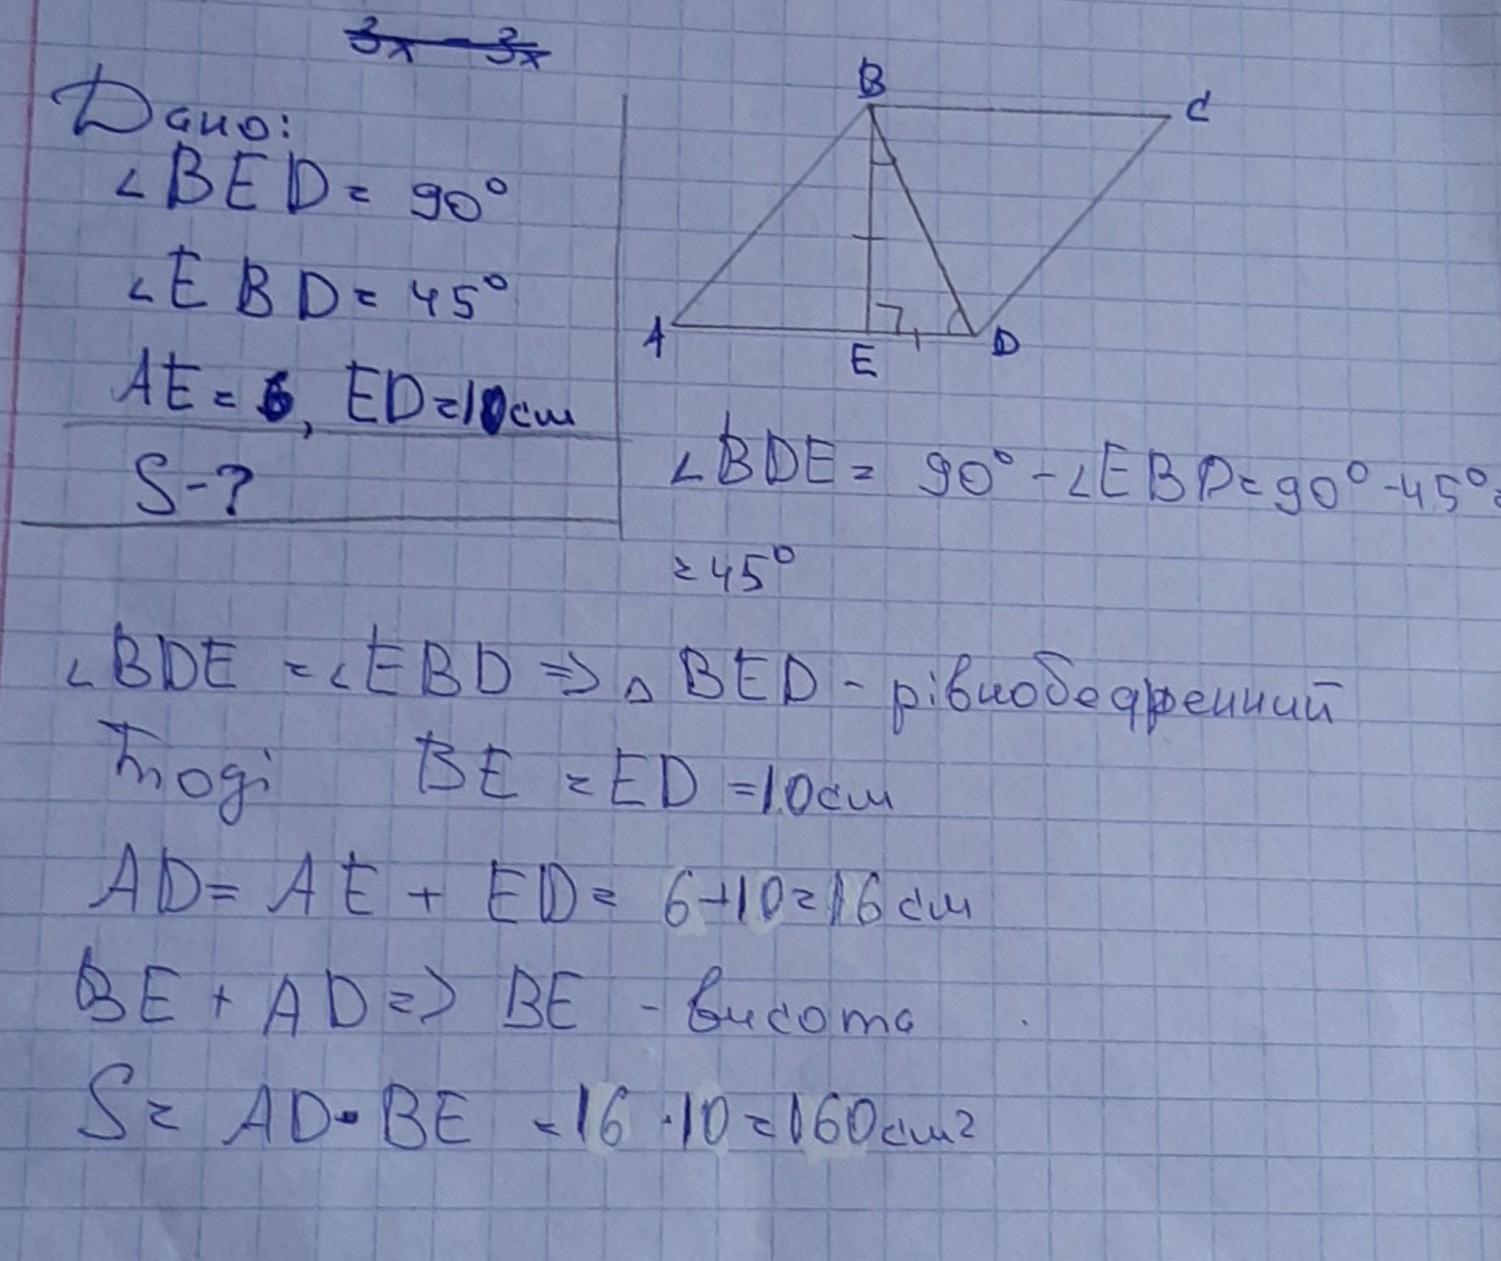 3x - 3x
Дано:
∠BED = 90°
∠EBD = 45°
AE = 6, ED=10см
S-?
B
C
A
E
D
∠BDE = 90° - ∠EBD = 90° - 45° =
= 45°
∠BDE = ∠EBD => △ BED - рівнобедренний
Тоді BE = ED = 10см
AD = AE + ED = 6+10=16 см
BE + AD => BE - висота
S = AD · BE = 16 · 10 = 160см²